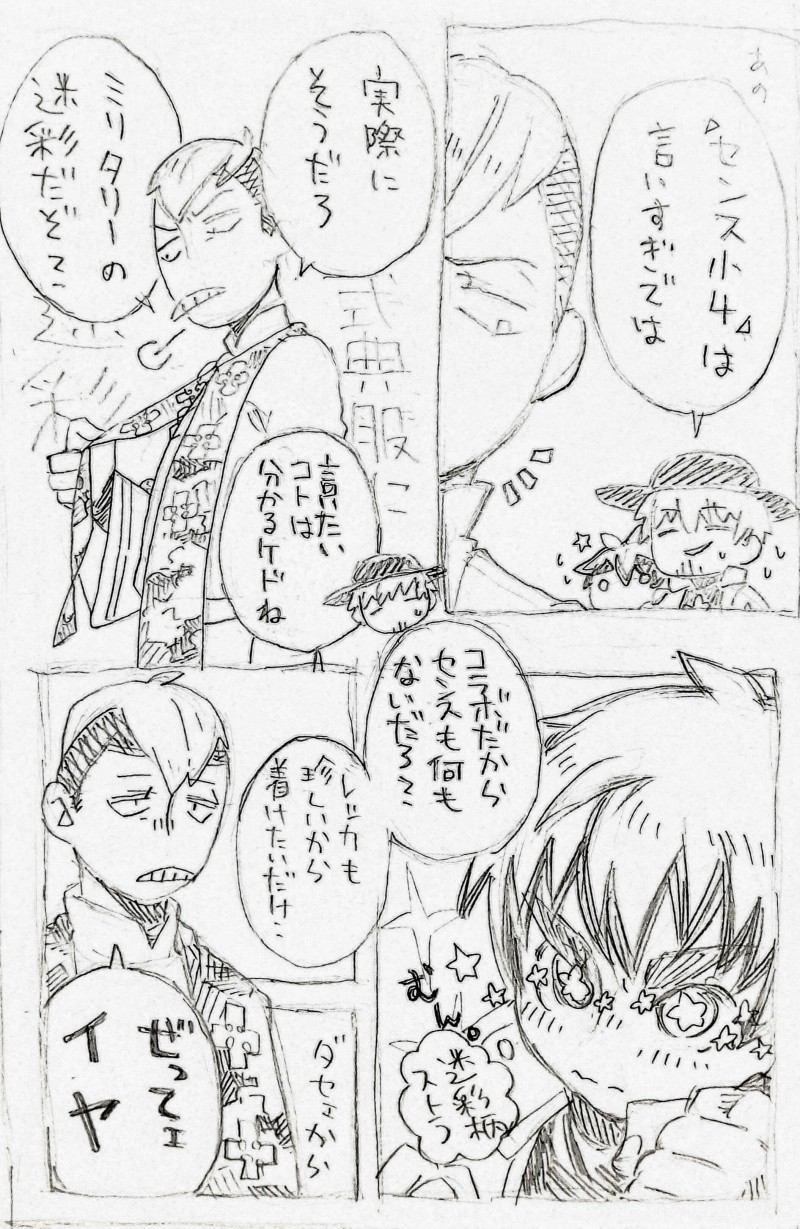 あの
「センス小4」は
言いすぎでは
実際に
そうだろ
ミリタリーの
迷彩だぞ？
式典服に
言いたい
コトは
分かるケドね
コラボだから
センスも何も
ないだろ？
むん。
迷彩柄
ストラ
レッカも
珍しいから
着けたいだけ？
ダセェから
ぜってェ
イヤ